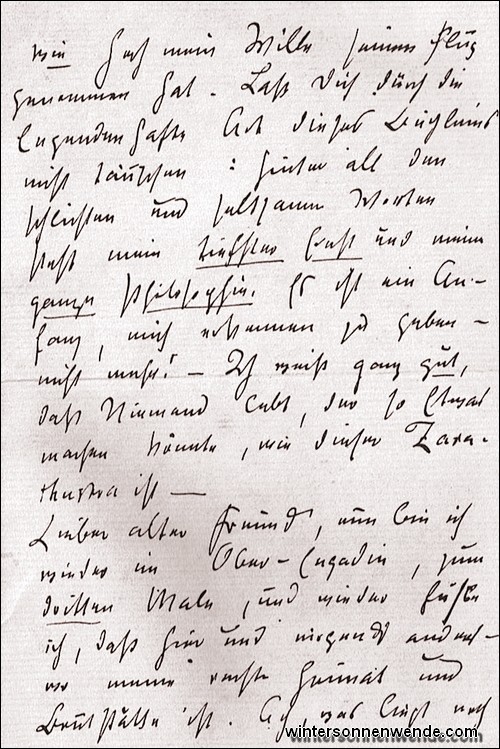 wie hoch mein Wille seinen Flug
genommen hat. Laß Dich durch die
legendenhafte Art dieses Büchleins
nicht täuschen: hinter all den
schlichten und seltsamen Worten
steht mein tiefster Ernst und meine
ganze Philosophie. Es ist ein An-
fang, mich erkennen zu geben –
nicht mehr! – Ich weiß ganz gut,
daß Niemand lebt, der so Etwas
machen könnte, wie dieser Zara-
thustra ist —
Lieber alter Freund, nun bin ich
wieder im Ober-Engadin, zum
dritten Male, und wieder fühle
ich, daß hier und nirgends anders-
wo meine rechte Heimat und
Brutstätte ist. Ach, was liegt noch
wintersonnenwende.com